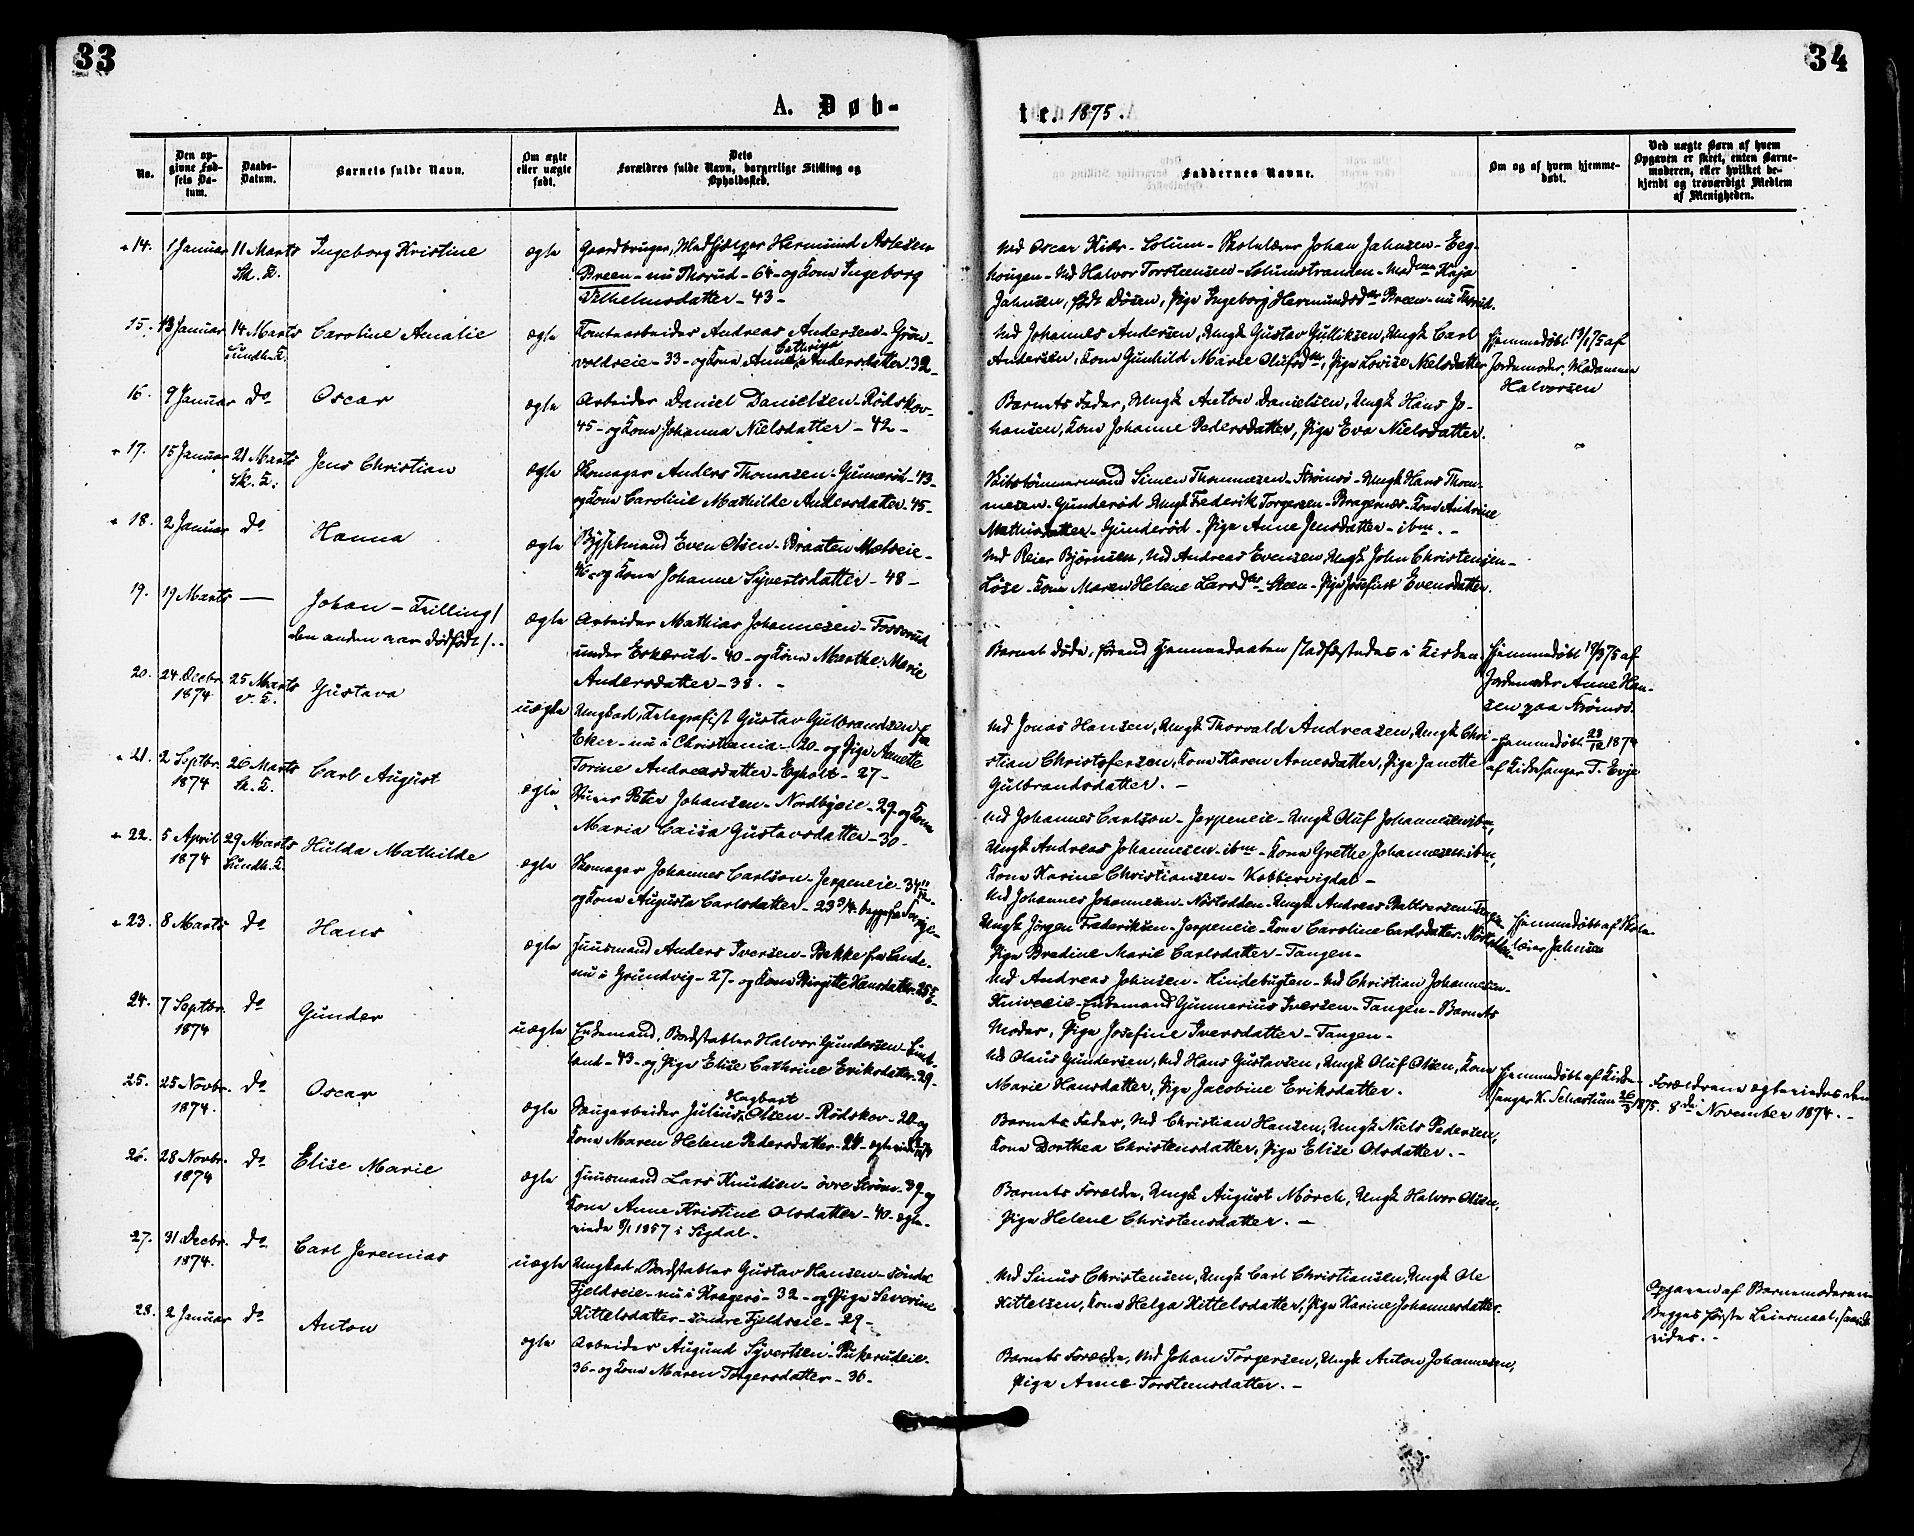 33
34
A. Døb-
te. 1875.
No.
Den op-
givne Fød-
sels Da-
tum.
Daabs-
Datum.
Barnets fulde Navn.
Om ægte
eller uægte
født.
Dets
Forældres fulde Navn, borgerlige Stilling og
Opholdssted.
Faddernes Navne.
Om og af hvem hjemme-
døbt.
Ved uægte Børn af hvem
Opgaven er skeet, enten Barne-
moderen, eller hvilket be-
kjendt og troværdigt Medlem
af Menigheden.
14. 1 Januar 11 Marts Ingeborg Kristine ægte
Sk. K.
Gaardbruger, Hermund Astesen
Breen - nu Thorud - 64 - og Kone Ingeborg
Vilhelmsdatter - 43 -
Md Oscar Kiær - Solum - Skolelærer Johan Jahnsen - Eeg-
hougen - Md Halvor Torstensen - Solumstranden - Kaja
Jahnsen, født Dosen, Pige Ingeborg Hermundsdtr Breen - nu Thorud.
15. 13 Januar 14 Marts Caroline Amalie ægte
Sundh. K.
Tomtearbeider Andreas Andersen - Grøn-
voldseie - 33 - og Kone Anne Cathrine Andersdatter 32 -
Md Johannes Andersen, Ungk Gustav Gulliksen, Ungk Carl
Andersen, Kone Gunhild Marie Olufsdtr, Pige Lovise Nielsdatter
Hjemmedøbt 13/1 75 af
Jordemoder, Madamme
Halvorsen
16. 9 Januar do Oscar ægte
Arbeider Daniel Danielsen - Rødskov -
45 - og Kone Johanna Nielsdatter - 42 -
Barnets Fader, Ungk Anton Danielsen, Ungk Hans Jo-
hansen, Kone Johanne Pedersdatter, Pige Eva Nielsdatter.
17. 15 Januar 21 Marts Jens Christian ægte
Sk. K.
Skomager Anders Thomasen - Gunnerød - 43 -
og Kone Caroline Mathilde Andersdatter - 45 -
Skibstømmermand Simen Thommesen - Strømsø - Ungk Hans Thom-
mesen - Gunderød - Ungk Frederik Torgersen - Bragernæs - Kone Andrine
Mathisdatter - Gunderød - Pige Anne Jensdatter - ibm. -
18. 2 Januar do Hanna ægte
Bygselmand Even Olsen - Braaten
og Kone Johanne Syvertsdatter - 48 -
Md Reier Bjørnsen, Md Andreas Evensen, Ungk John Christensen -
Løse - Kone Maren Helene Larsdtr - Steen - Pige Josefine Evensdatter.
19. 19 Marts — Johan - Tvilling / ægte
den anden var dødfødt /. -
Arbeider Mathias Johannesen - Tosserud
under Eskerud - 40 - og Kone Marthe Marie
Andersdatter - 38. -
Barnet døde, førend Hjemmedaaben stadfæstedes i Kirken.
Hjemmedøbt 19/3 75 af
Jordemoder Anne Han-
sen paa Strømsø.
20. 24 Decbr. 25 Marts Gustava uægte
1874 v. K.
Ungkarl, Telegrafist Gustav Gulbrandsen fra
Eker - nu i Christiania - 20 - og Pige Annette
Torine Andreasdatter - Egholt - 27 -
Md Jonas Hansen, Ungk Thorvald Andreasen, Ungk Chri-
stian Christofersen, Kone Karen Arnesdatter, Pige Janette
Gulbrandsdatter. -
Hjemmedøbt 28/12 1874
af Kirkesanger T. Evje
21. 2 Septbr. 26 Marts Carl August ægte
1874 Sk. K.
Peter Johansen - Nordbyeie - 29 - og Kone
Maria Caisa Gustavsdatter - 30 -
Md Johannes Carlson - Jerpeneie - Ungk Oluf Johannesen ibm,
Ungk Andreas Johannesen - ibm - Kone Grethe Johannesen ibm,
Kone Karine Christiansen - Kobbervigdal -
22. 5 April 29 Marts Hulda Mathilde ægte
1874 Sundh. K.
Skomager Johannes Carlson - Jerpeneie - 34
og Kone Augusta Carlsdatter - 23
Md Johannes Johannesen - Ungk Andreas Tangen
Ungk Jørgen Frederiksen - Jerpeneie - Kone Caroline Carlsdatter -
Pige Bredine Marie Carlsdatter - Tangen -
Hjemmedøbt af Skole-
lærer Jahnsen
23. 8 Marts do Hans ægte
Huusmand Anders Iversen - Bakke fra Lande -
nu i Grundvig - 27 - og Kone Birgitte Hansdatter
Md Andreas Johnsen - Hindebugten - Md Christian Johannesen -
Kniveeie - Enkemand Gunnerius Iversen - Tangen - Barnets
Moder, Pige Josefine Iversdatter - Tangen -
24. 7 Septbr. do Gunder uægte
1874
Enkemand, Bordstabler Halvor Gundersen - Lind-
land - 43 - og Pige Elise Cathrine Eriksdatter - 29 -
Md Olaus Gundersen, Md Hans Gustavsen, Ungk Oluf Olsen, Kone
Marie Hansdatter, Pige Jacobine Eriksdatter.
Hjemmedøbt af Kirke-
sanger K. 1875.
Forældrene ægteviedes den
8de November 1874. -
25. 25 Novbr. do Oscar ægte
1874.
Saugarbeider Julius Hagbart Olsen - Rødskov - 20 - og
Kone Maren Helene Pedersdatter - 24 -
Barnets Fader, Md Christian Hansen, Ungk Niels Pedersen,
Kone Dorthea Christensdatter, Pige Elise Olsdatter. -
26. 28 Novbr. do Elise Marie ægte
1874
Huusmand Lars Knudsen - øvre Strøm - 39 - og
Kone Anne Kristine Olsdatter - 40 - ægte-
viede 8/1 1857 i Sigdal. -
Barnets Forældre, Ungk August Mørch, Ungk Halvor Olsen,
Pige Helene Christensdatter. -
27. 31 Decbr. do Carl Jeremias uægte
1874.
Ungkarl, Bordstabler Gustav Hansen - søndre
Fjeldseie - nu i Kragerø - 32 - og Pige Severine
Kittelsdatter - søndre Fjeldseie - 29 -
Md Simus Christensen, Ungk Carl Christiansen, Ungk Ole
Kittelsen, Kone Helga Kittelsdatter, Pige Karine Johannesdatter
Opgaven af Barnemoderen.
Begges første Leiermaal,
28. 2 Januar do Anton ægte
Arbeider Augund Syvertsen - Pukerudeie -
36 - og Kone Maren Torgersdatter - 36 -
Barnets Forældre, Md Johan Torgersen, Ungk Anton Johannesen,
Pige Anne Torstensdatter. -